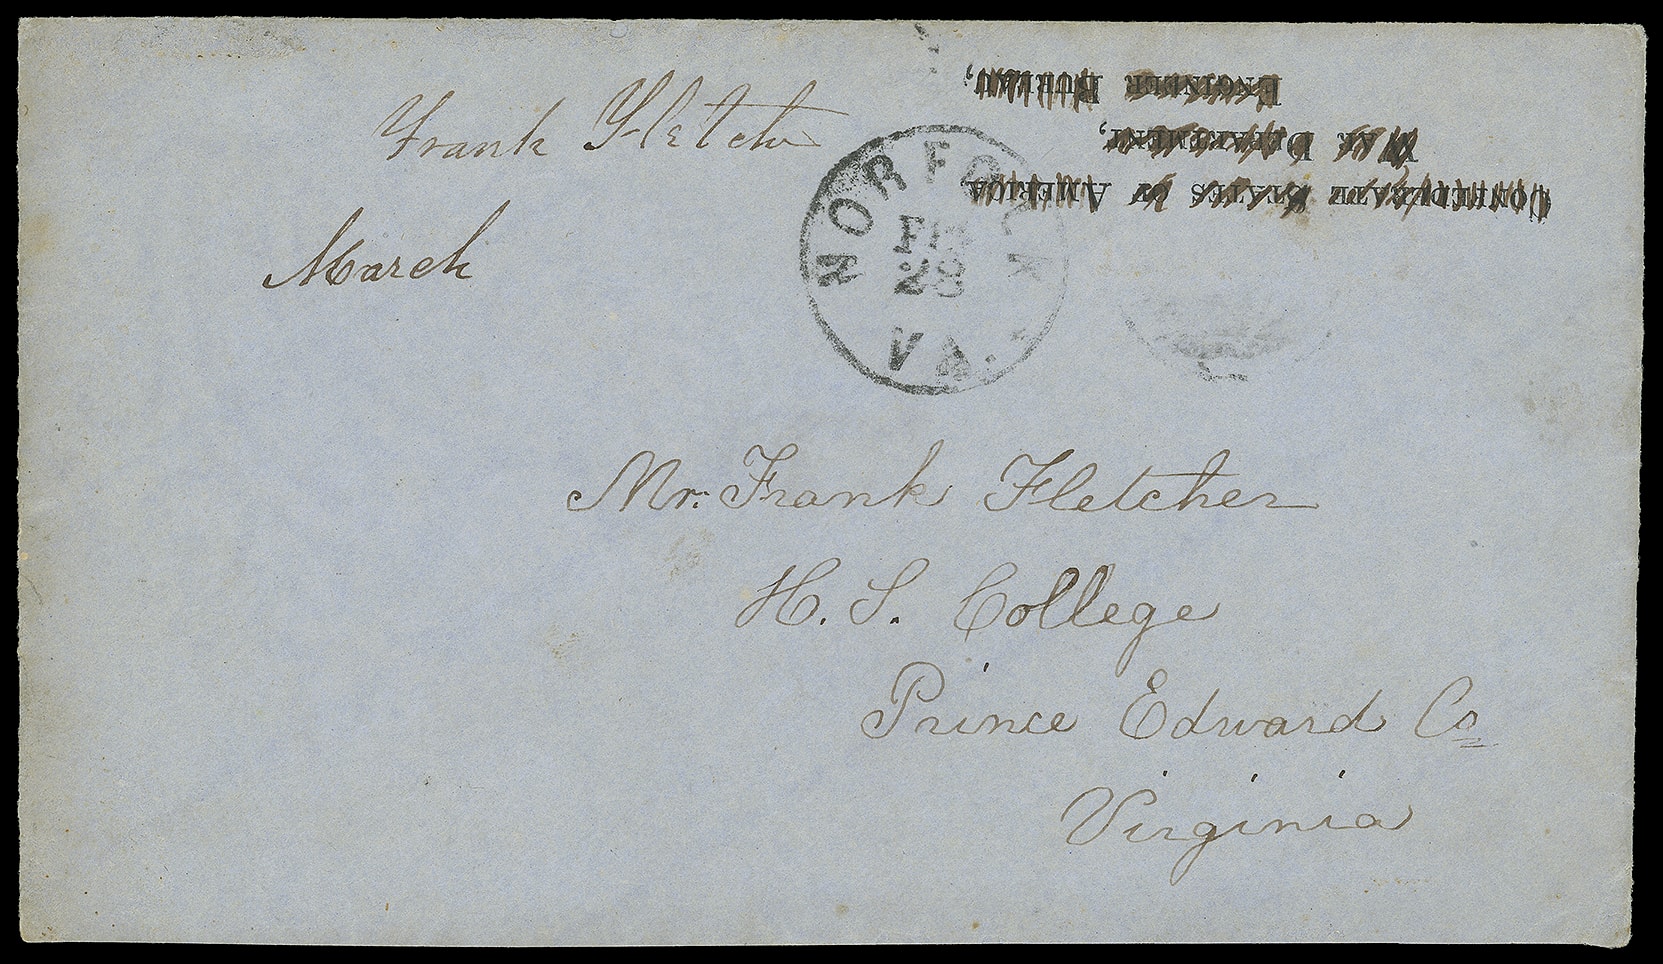 Confederate States of America
War Department,
Engineer Bureau,
Frank Fletch
March
NORFOLK
FEB
28
VA.
Mr. Frank Fletcher
H. S. College
Prince Edward Co
Virginia